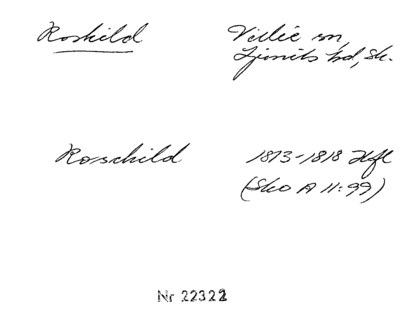 Roshild
Villie sn,
Ljunits hd, Sk.
Rorschild
1813-1818 Hfl
(Sko A II:99)
Nr 22322